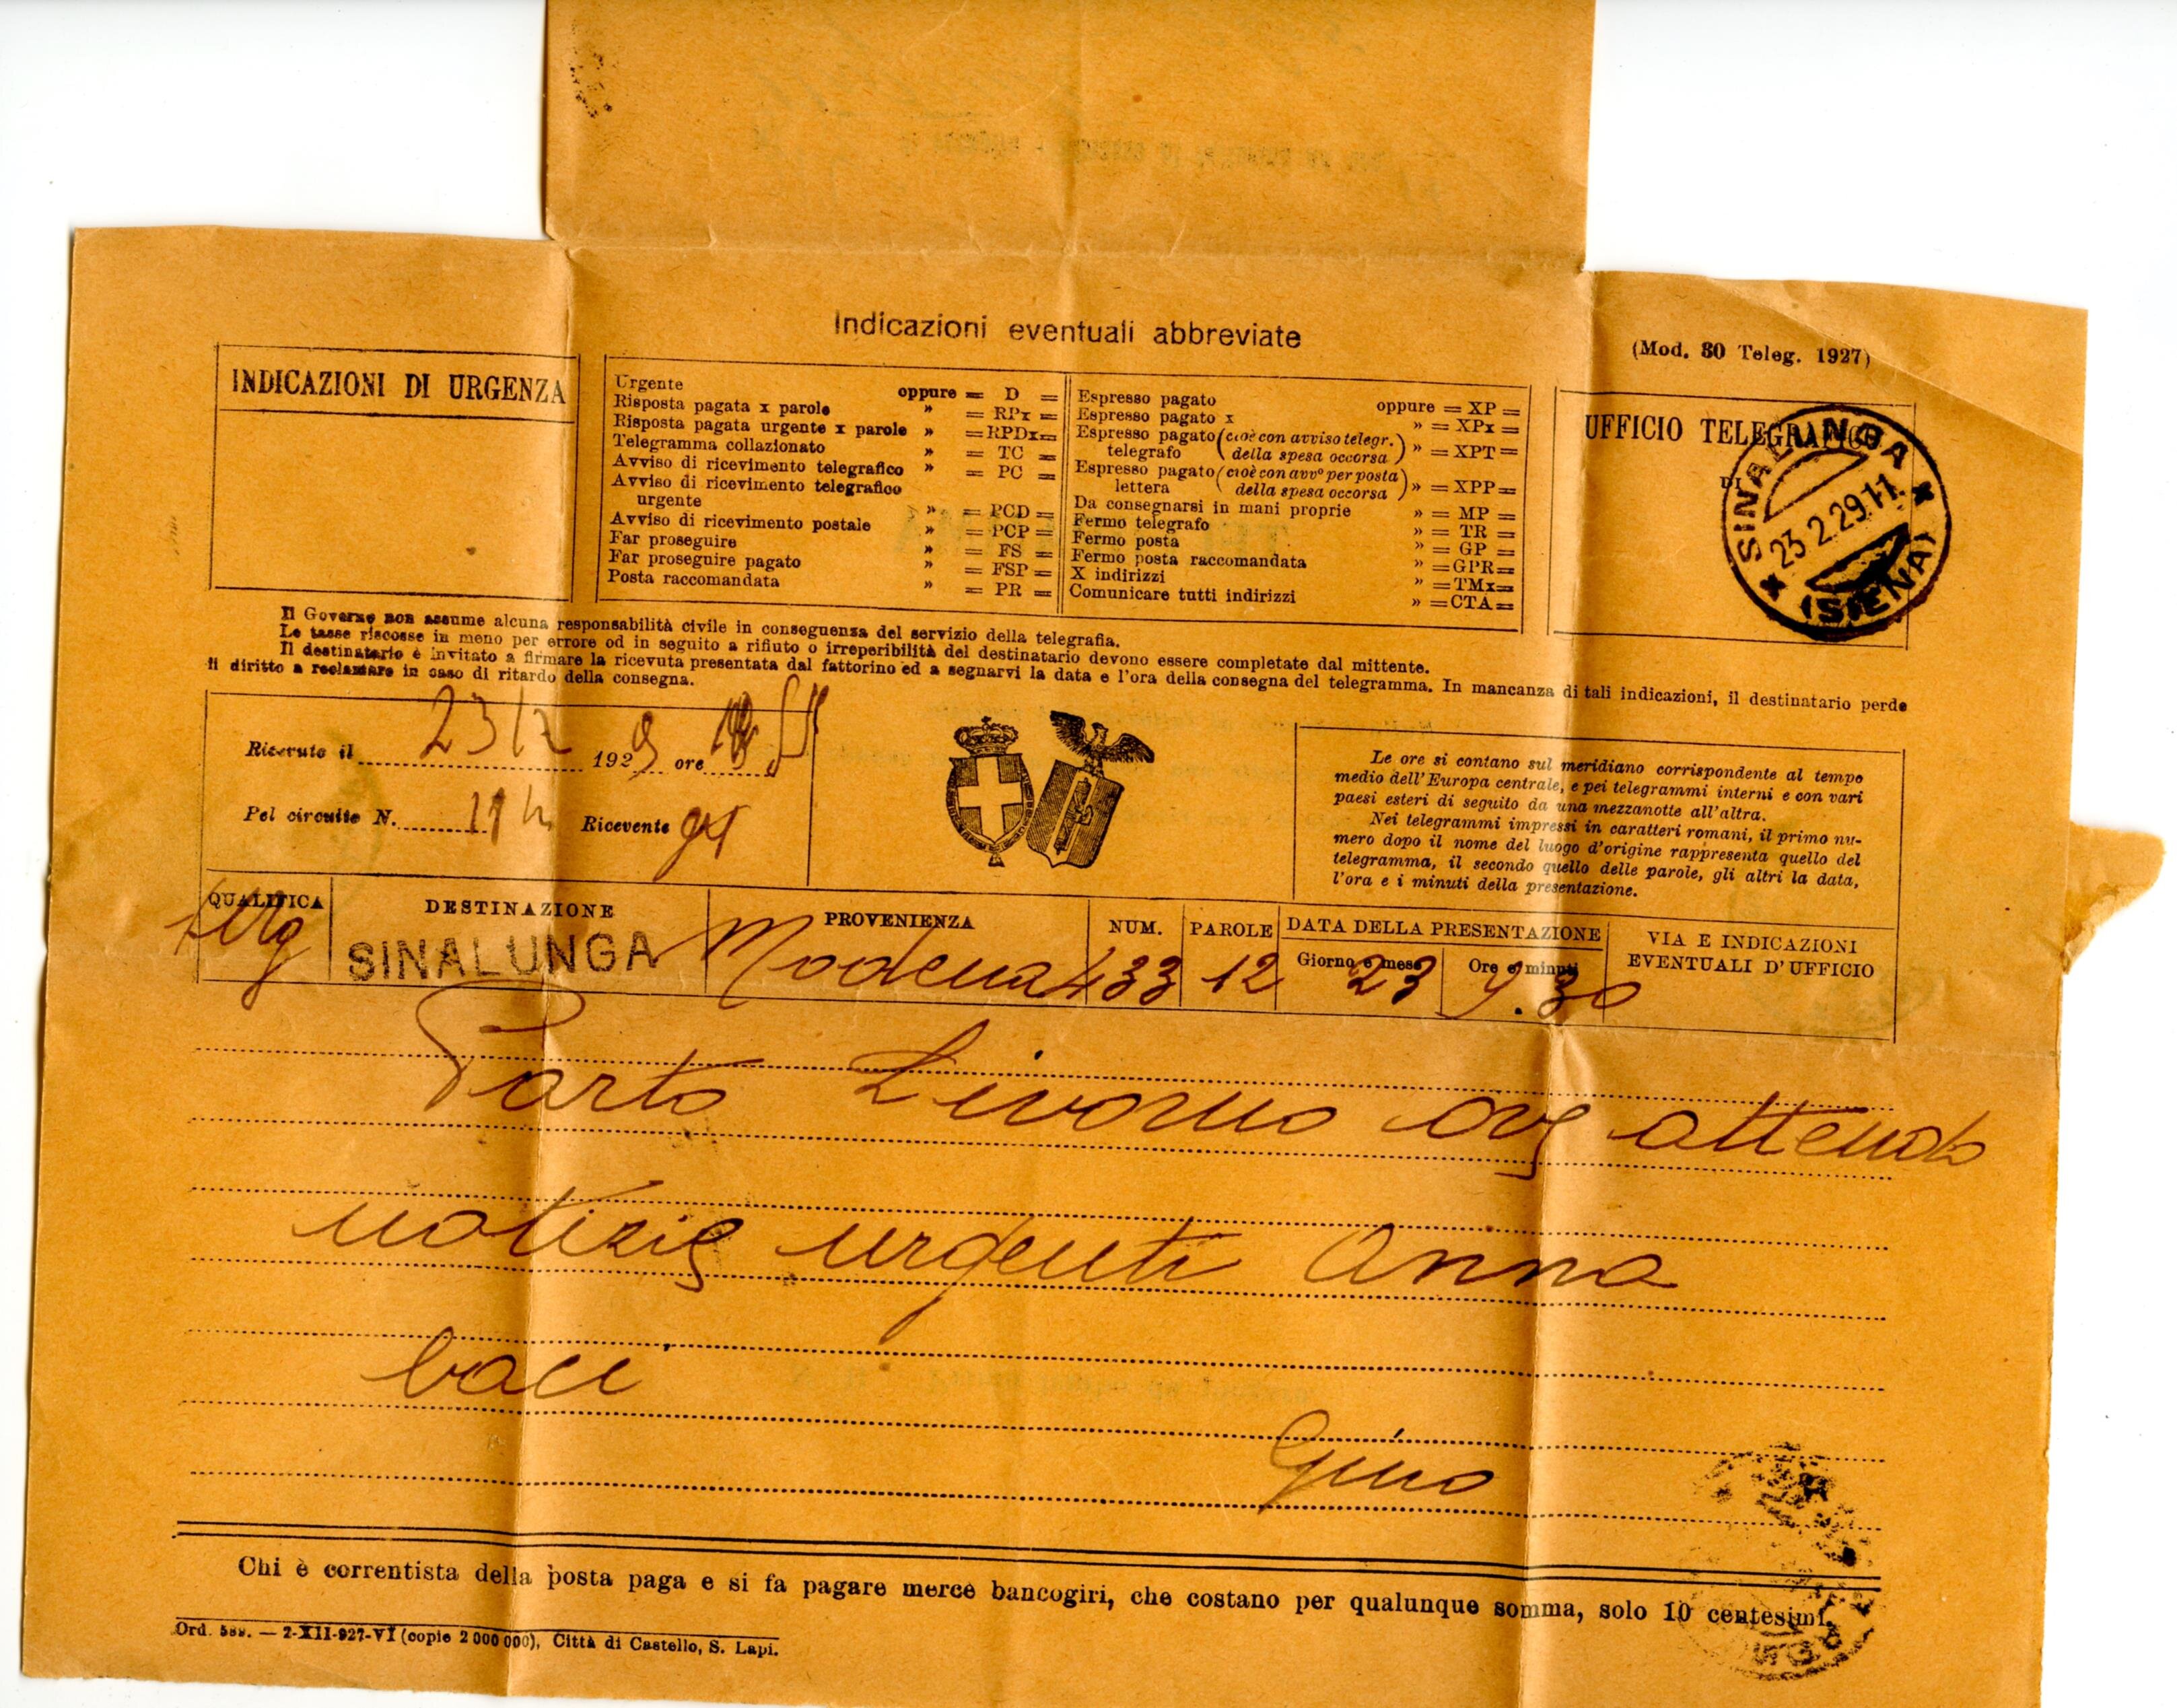 Indicazioni eventuali abbreviate
(Mod. 30 Teleg. 1927)
INDICAZIONI DI URGENZA
Urgente oppure = D =
Risposta pagata x parole » = RPx =
Risposta pagata urgente x parole » = RPDx =
Telegramma collazionato » = TC =
Avviso di ricevimento telegrafico » = PC =
Avviso di ricevimento telegrafico
urgente » = PCD =
Avviso di ricevimento postale » = PCP =
Far proseguire » = FS =
Far proseguire pagato » = FSP =
Posta raccomandata » = PR =
Espresso pagato oppure = XP =
Espresso pagato x » = XPx =
Espresso pagato (cioè con avviso telegr.
telegrafo della spesa occorsa) » = XPT =
Espresso pagato (cioè con avvº per posta
lettera della spesa occorsa) » = XPP =
Da consegnarsi in mani proprie » = MP =
Fermo telegrafo » = TR =
Fermo posta » = GP =
Fermo posta raccomandata » = GPR =
X indirizzi » = TMx =
Comunicare tutti indirizzi » = CTA =
UFFICIO TELEGRAFICO
DI
SINALUNGA
23.2.29.11.
(SIENA)
Il Governo non assume alcuna responsabilità civile in conseguenza del servizio della telegrafia.
Le tasse riscosse in meno per errore od in seguito a rifiuto o irreperibilità del destinatario devono essere completate dal mittente.
Il destinatario è invitato a firmare la ricevuta presentata dal fattorino ed a segnarvi la data e l'ora della consegna del telegramma. In mancanza di tali indicazioni, il destinatario perde
il diritto a reclamare in caso di ritardo della consegna.
Ricevuto il 23/2 1929 ore
Pel circuito N. Ricevente
Le ore si contano sul meridiano corrispondente al tempo
medio dell'Europa centrale, e pei telegrammi interni e con vari
paesi esteri di seguito da una mezzanotte all'altra.
Nei telegrammi impressi in caratteri romani, il primo nu-
mero dopo il nome del luogo d'origine rappresenta quello del
telegramma, il secondo quello delle parole, gli altri la data,
l'ora e i minuti della presentazione.
QUALIFICA DESTINAZIONE PROVENIENZA NUM. PAROLE DATA DELLA PRESENTAZIONE VIA E INDICAZIONI
Giorno e mese Ore e minuti EVENTUALI D'UFFICIO
Urg SINALUNGA Modena 433 12 23 9.30
Parto Livorno ore attendo
notizie urgenti Anna
baci
Gino
Chi è correntista della posta paga e si fa pagare mercè bancogiri, che costano per qualunque somma, solo 10 centesimi.
Ord. 589. — 2-XII-927-VI (copie 2 000 000), Città di Castello, S. Lapi.